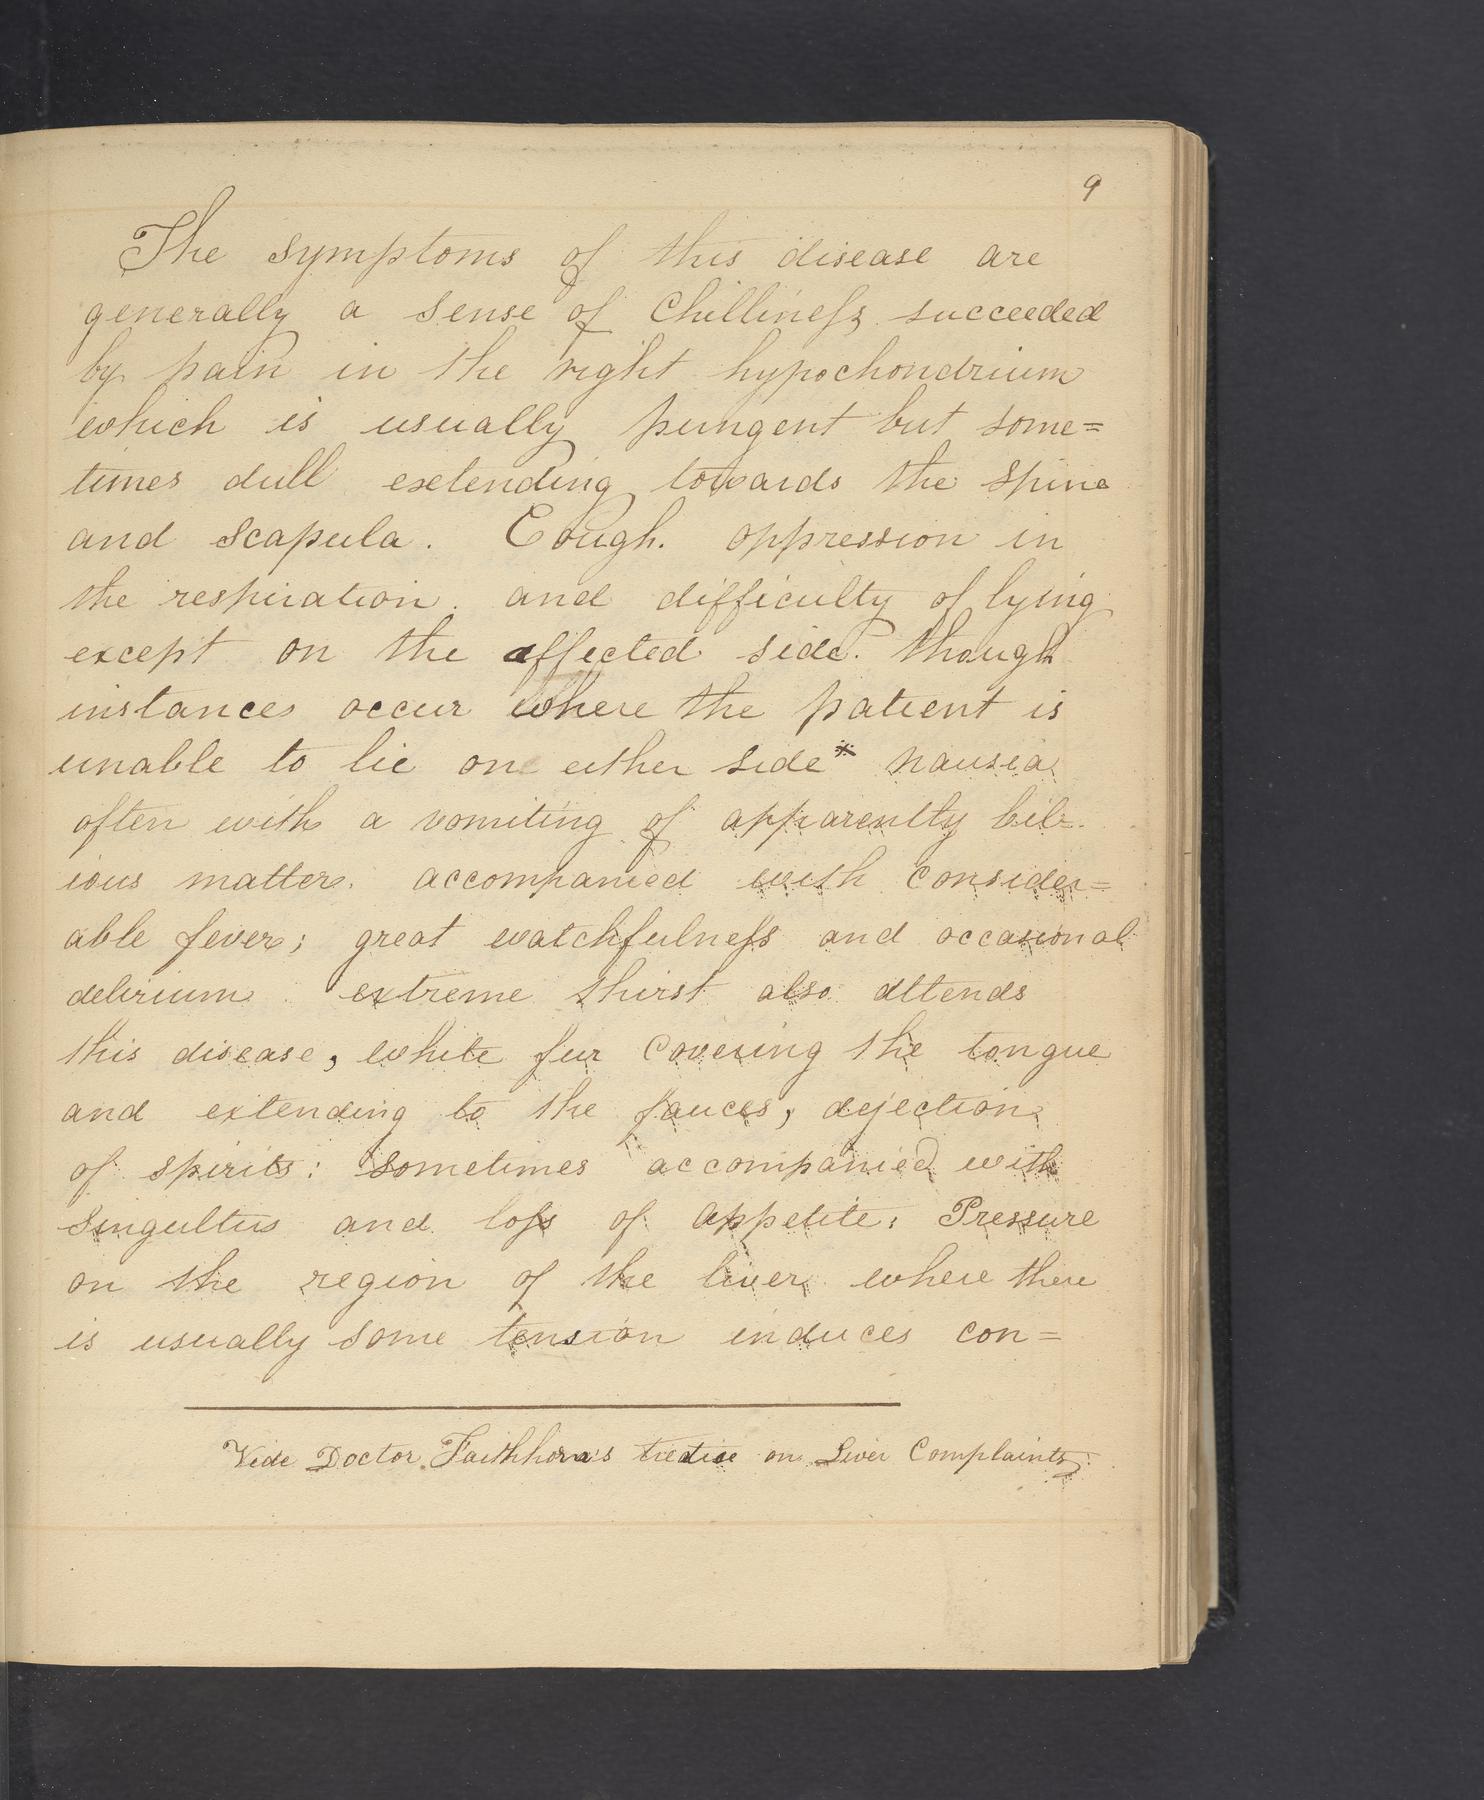 9
The symptoms of this disease are
generally a sense of Chillineſs succeeded
by pain in the right hypochondrium
which is usually pungent but some=
times dull extending towards the spine
and scapula. Cough. oppression in
the respiration. and difficulty of lying
except on the affected side. though
instances occur where the patient is
unable to lie on either side* nausea
often with a vomiting of apparently bil=
ious matter. accompanied with consider=
able fever; great watchfulneſs and occasional
delirium. extreme thirst also attends
this disease, white fur covering the tongue
and extending to the fauces, dejection
of spirits: sometimes accompanied with
Singultus and loſs of appetite: Pressure
on the region of the liver where there
is usually some tension induces con=
Vide Doctor Faithhorn's treatise on Liver Complaints.